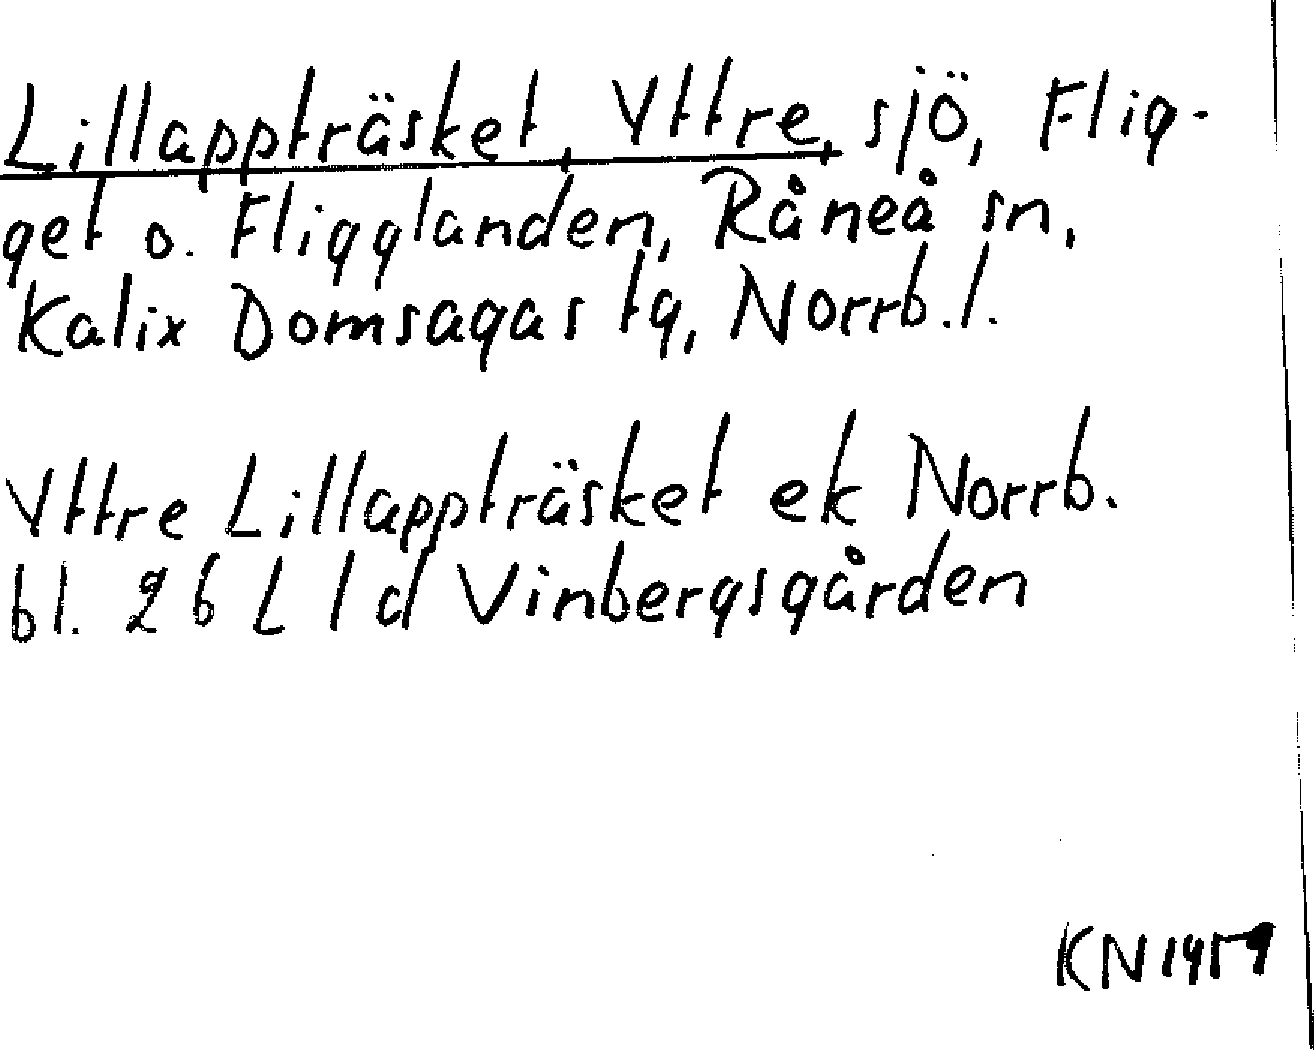 Lillappträsket, Yttre, sjö, Flig-
get o. Fligglanden, Råneå sn,
Kalix Domsagas tg, Norrb.l.
Yttre Lillappträsket ek Norrb.
bl. 26 L l d Vinbergsgården
KN 1959